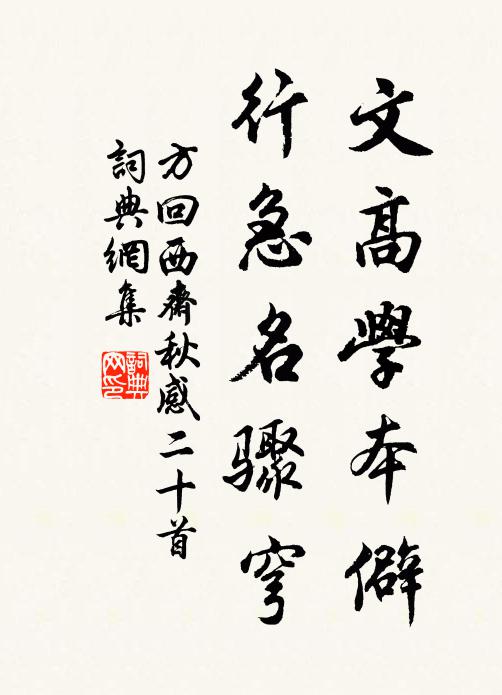 文高學本僻
行急名驟穹
方回西齋秋感二十首
詞典網集
詞典网印